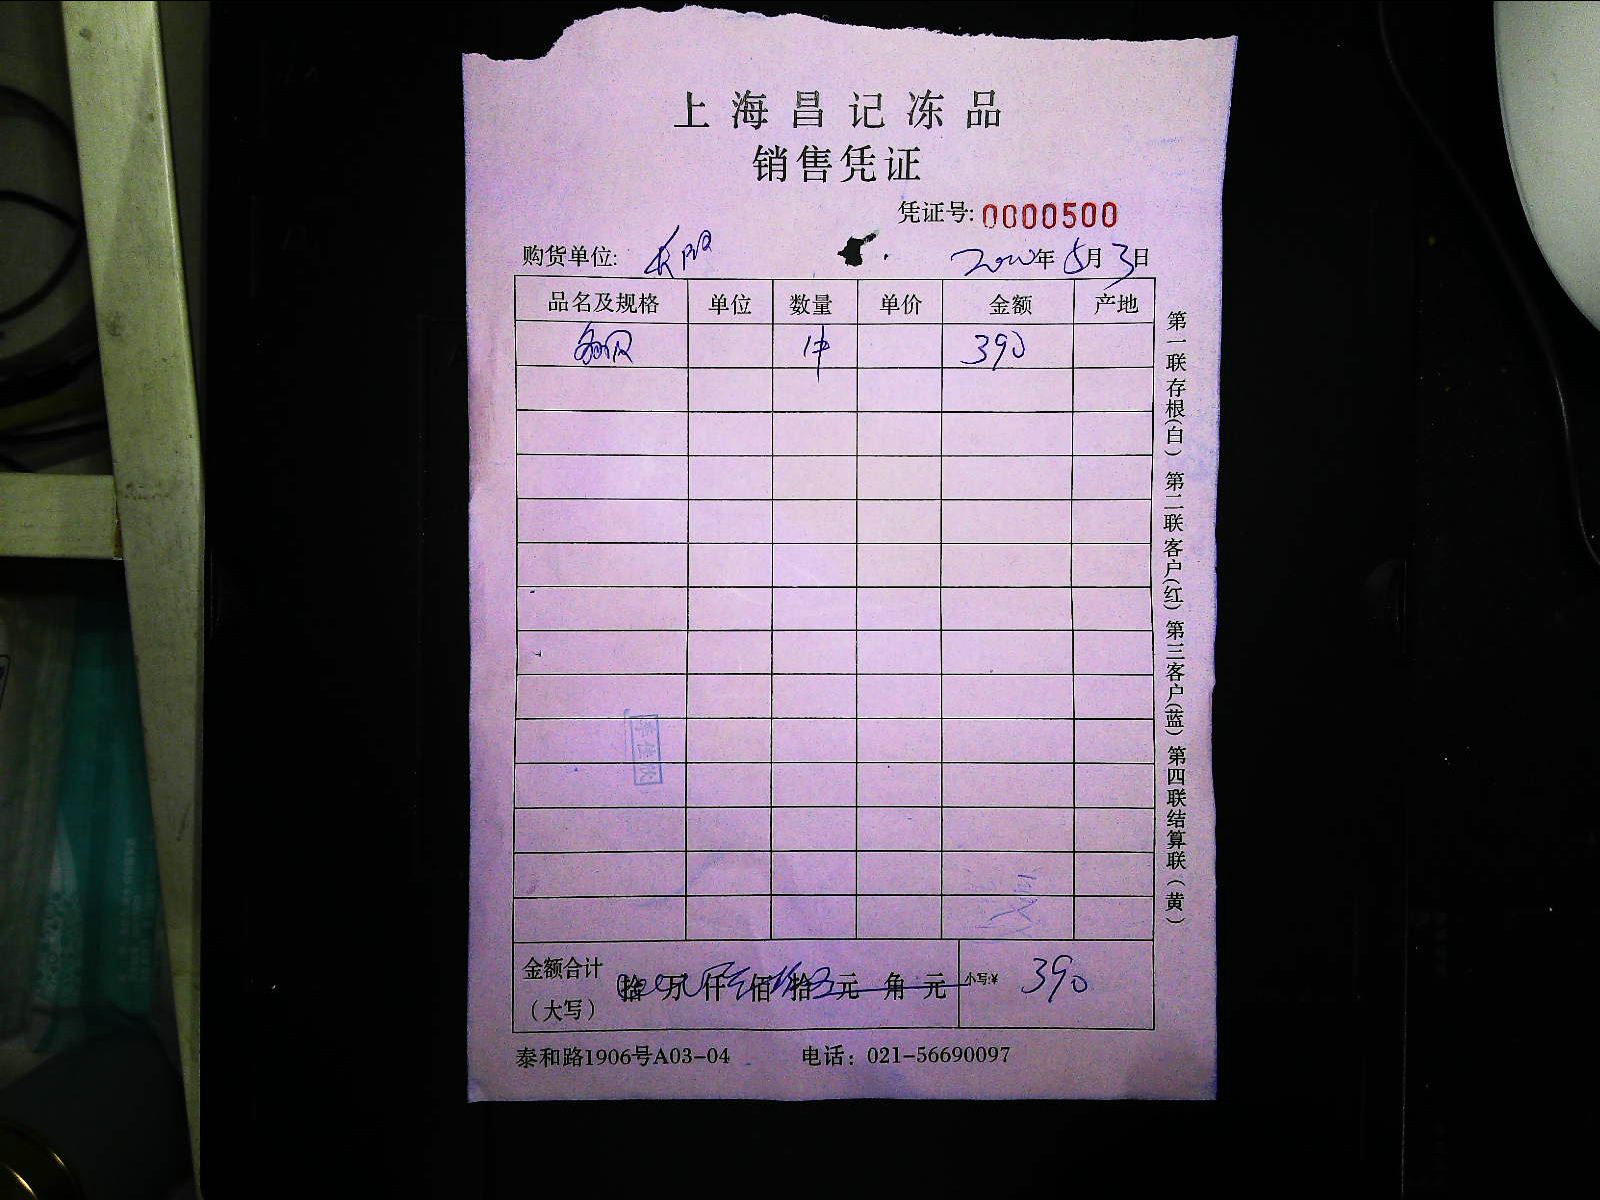 上海昌记冻品
销售凭证
凭证号: 0000500
购货单位:
年 5月3日
品名及规格 单位 数量 单价 金额 产地
1件 390
金额合计 拾 万 仟 佰 拾 元 角 元 小写:¥ 390
（大写）
泰和路1906号A03-04 电话：021-56690097
第一联存根(白) 第二联客户(红) 第三客户(蓝) 第四联结算联(黄)